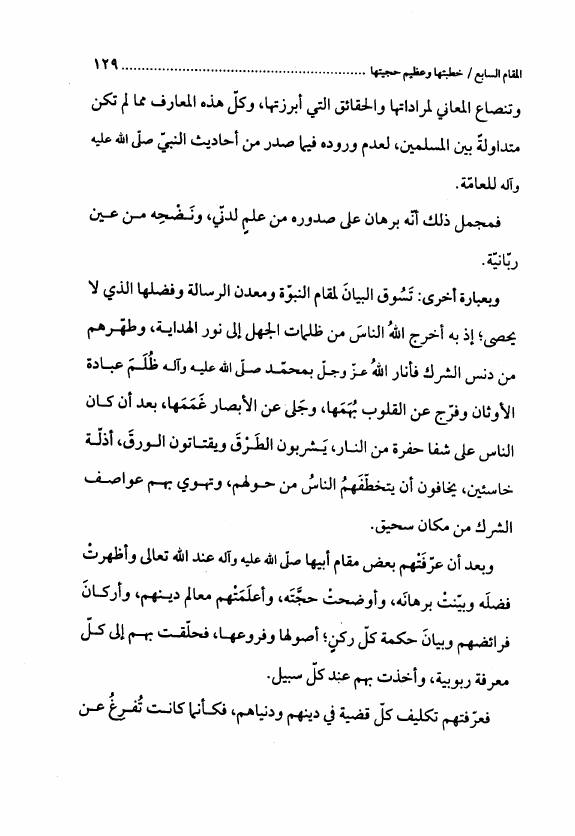 المقام السابع / خطبتها وعظيم حجيتها ............................................................ ١٢٩
وتنصاع المعاني لمراداتها والحقائق التي أبرزتها، وكلّ هذه المعارف مما لم تكن
متداولةً بين المسلمين، لعدم وروده فيما صدر من أحاديث النبيّ صلّى الله عليه
وآله للعامّة.
فمجمل ذلك أنّه برهان على صدوره من علمٍ لدنّي، ونَضْحِه من عين
ربّانيّة.
وبعبارة أخرى: تَسُوق البيانَ لمقام النبوّة ومعدن الرسالة وفضلها الذي لا
يحصى؛ إذ به أخرج اللهُ الناسَ من ظلمات الجهل إلى نور الهداية، وطهّرهم
من دنس الشرك فأنار اللهُ عزّ وجلّ بمحمّد صلّى الله عليه وآله ظُلَمَ عبادة
الأوثان وفرّج عن القلوب بُهَمَها، وجَلى عن الأبصار غَمَمَها، بعد أن كان
الناس على شفا حفرة من النار، يَشربون الطَرْقَ ويقتاتون الورق، أذلّة
خاسئين، يخافون أن يتخطّفَهمُ الناسُ من حولهم، وتهوي بهم عواصف
الشرك من مكان سحيق.
وبعد أن عرّفَتْهم بعض مقام أبيها صلّى الله عليه وآله عند الله تعالى وأظهرتْ
فضلَه وبيّنتْ برهانَه، وأوضحتْ حجَّتَه، وأعلَمَتْهم معالم دينهم، وأركانَ
فرائضهم وبيانَ حكمة كلّ ركنٍ؛ أصولها وفروعها، فحلّقت بهم إلى كلّ
معرفة ربوبية، وأخذت بهم عند كلّ سبيل.
فعرّفتهم تكليف كلّ قضية في دينهم ودنياهم، فكأنما كانت تُفرِغُ عن